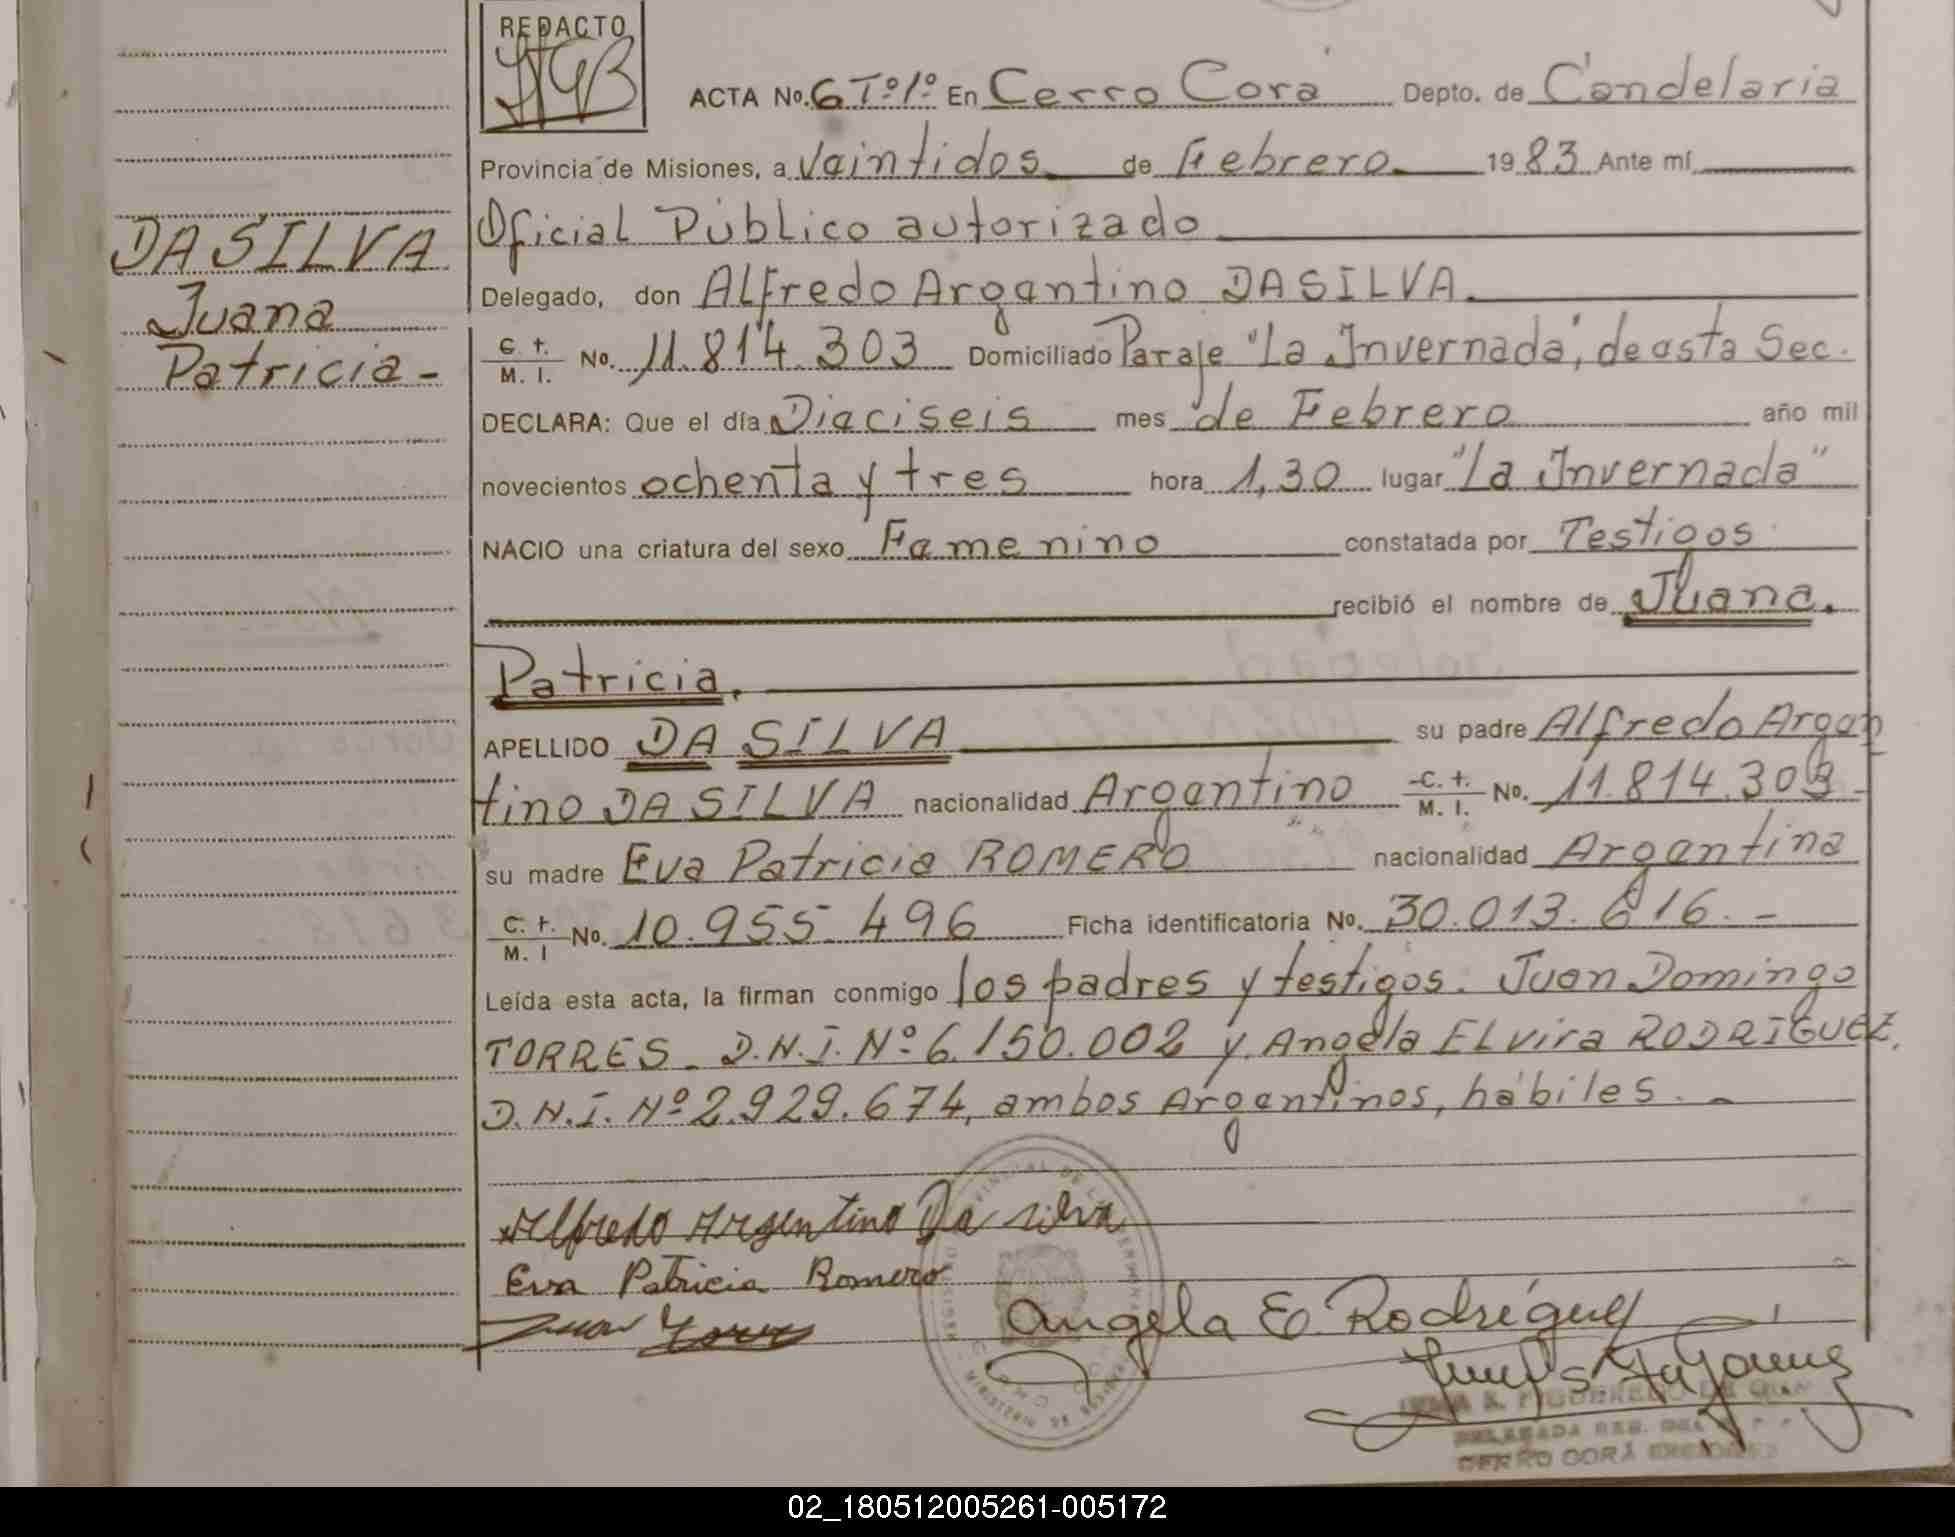 REDACTO
ACTA No. 6 Tº 1º En Cerro Corá Depto. de Candelaria
Provincia de Misiones, a Veintidos de Febrero 1983 Ante mí
Oficial Público autorizado
DA SILVA
Delegado, don Alfredo Argentino DA SILVA.
Juana
C. I. M. I. No. 11.814.303 Domiciliado Paraje "La Invernada", de esta Sec.
Patricia-
DECLARA: Que el día Dieciseis mes de Febrero año mil
novecientos ochenta y tres hora 1,30 lugar "La Invernada"
NACIO una criatura del sexo Femenino constatada por Testigos
recibió el nombre de Juana.
Patricia.
APELLIDO DA SILVA su padre Alfredo Argen
tino DA SILVA nacionalidad Argentino C. I. M. I. No. 11.814.303
su madre Eva Patricia ROMERO nacionalidad Argentina
C. I. M. I No. 10.955.496 Ficha identificatoria No. 30.013.616.-
Leída esta acta, la firman conmigo los padres y testigos. Juan Domingo
TORRES. D.N.I. Nº 6.150.002 y Angela ELvira RODRIGUEZ,
D.N.I. Nº 2.929.674, ambos Argentinos, hábiles.-
Alfredo Argentino Da silva
Eva Patricia Romero
Juan Torres
Angela E. Rodríguez
CERRO CORÁ
02_180512005261-005172